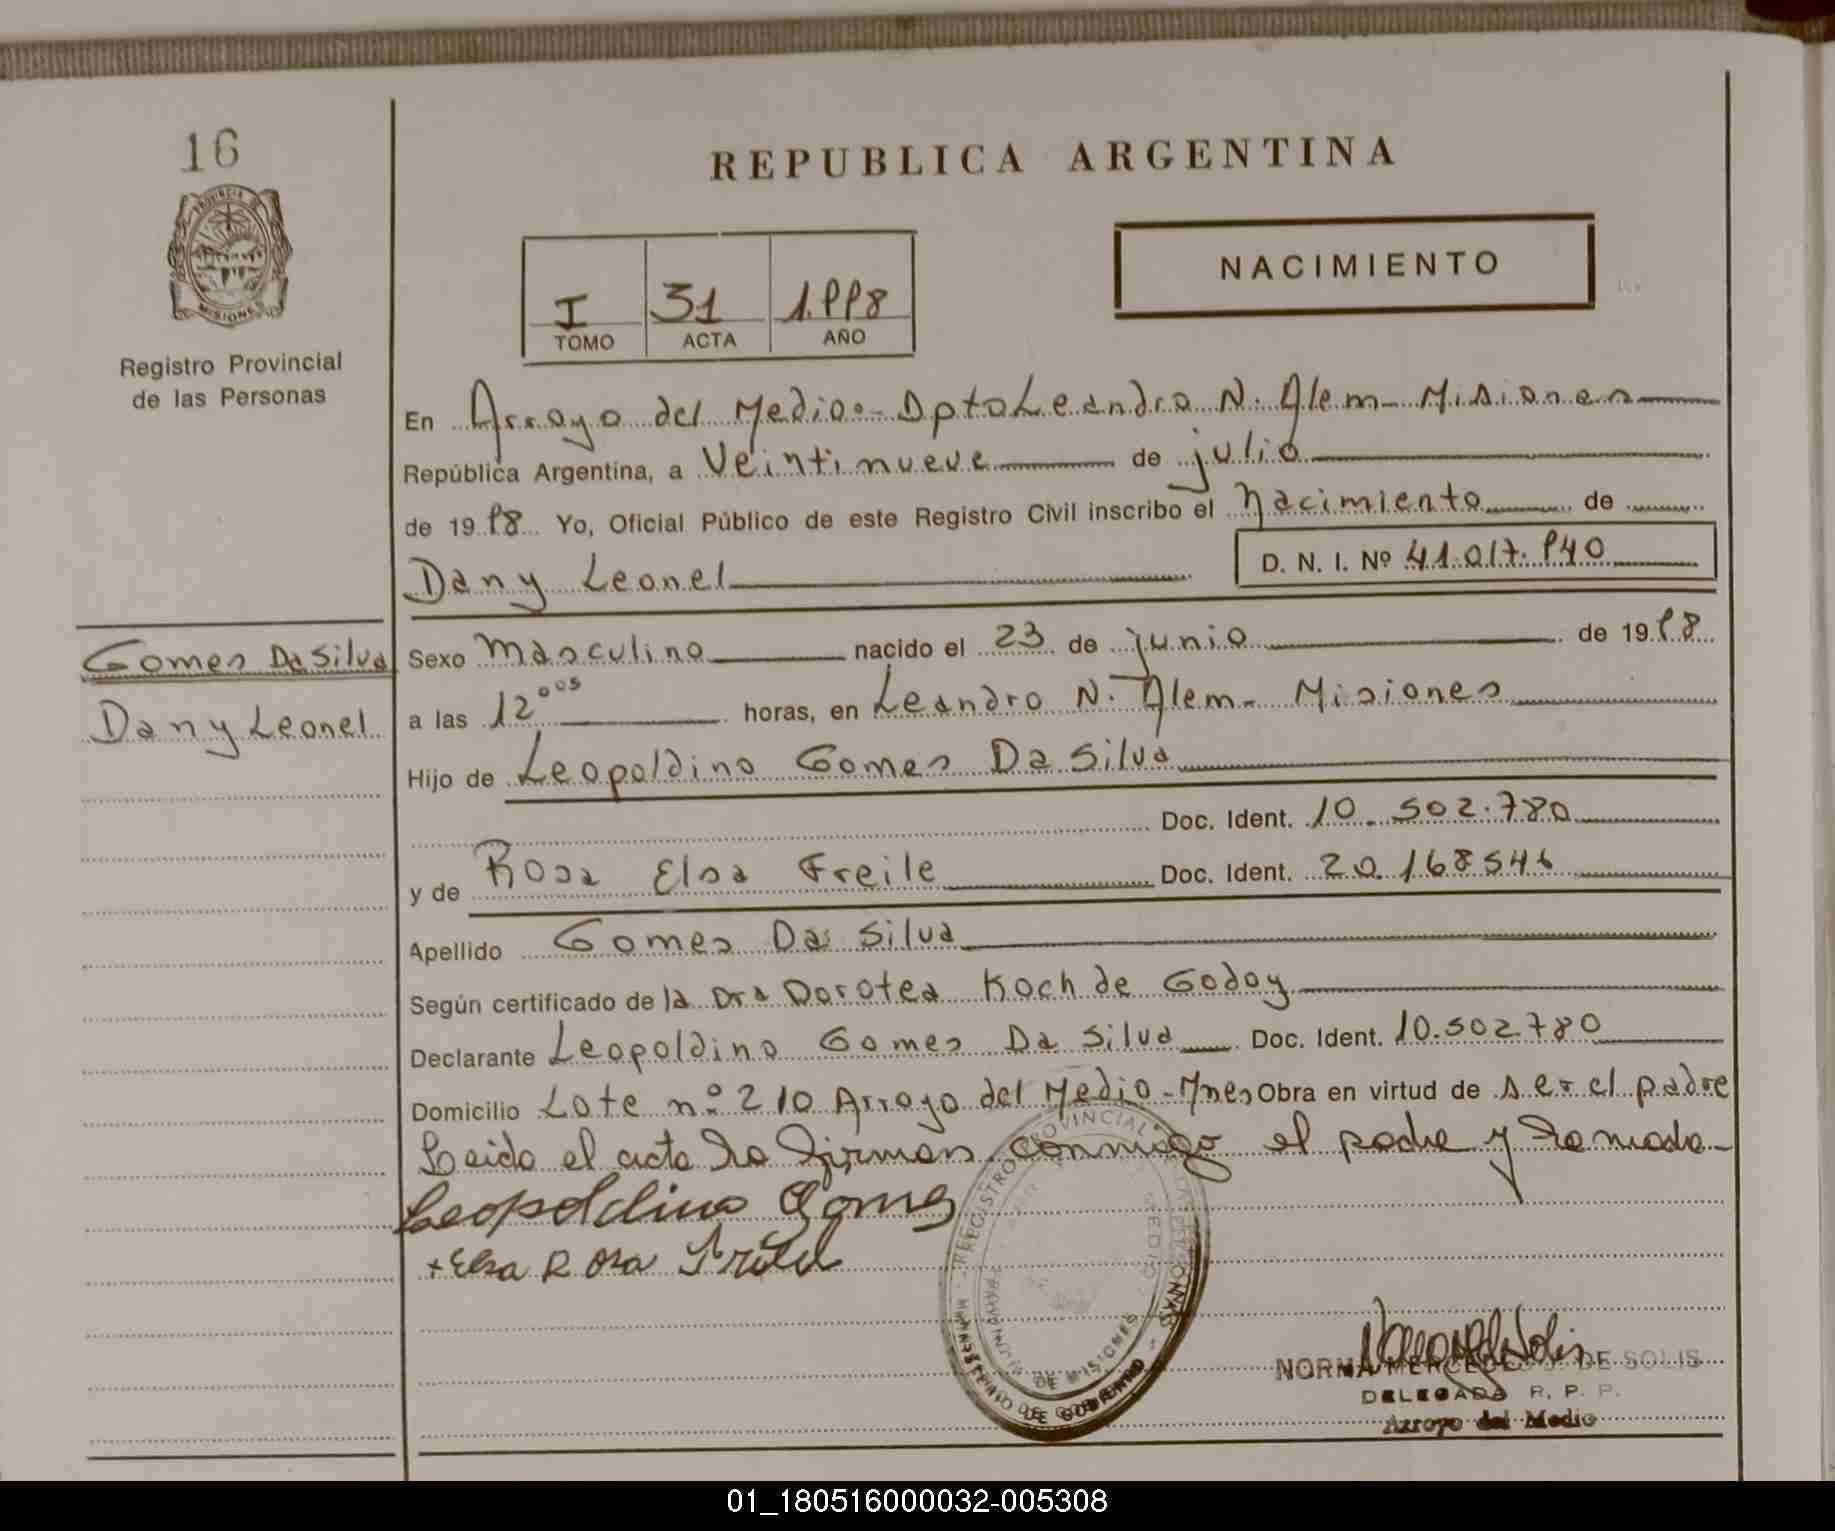 16
REPUBLICA ARGENTINA
NACIMIENTO
I 31 1.998
TOMO ACTA AÑO
PROVINCIA DE
MISIONES
Registro Provincial
de las Personas
En Arroyo del Medio.- Dpto Leandro N. Alem - Misiones
República Argentina, a Veintinueve de julio
de 1998 Yo, Oficial Público de este Registro Civil inscribo el Nacimiento de
D. N. I. Nº 41.017.940
Dany Leonel
Gomes Da Silva
Dany Leonel
Sexo Masculino nacido el 23 de junio de 1998
a las 12°°s horas, en Leandro N. Alem - Misiones
Hijo de Leopoldino Gomes Da Silva
Doc. Ident. 10.502.780
y de Rosa Elsa Freile Doc. Ident. 20.168546
Apellido Gomes Da Silva
Según certificado de la Dra Dorotea Koch de Godoy
Declarante Leopoldino Gomes Da Silva Doc. Ident. 10.502780
Domicilio Lote n.º 210 Arroyo del Medio - Mnes Obra en virtud de ser el padre
Leida el acta la firman conmigo el padre y la madre -
Leopoldino Gomes
+ Elsa Rosa
REGISTRO PROVINCIAL DE LAS PERSONAS
MINISTERIO DE GOBIERNO
PROVINCIA DE MISIONES
NORMA MERCEDES DE SOLIS
DELEGADA R. P. P.
Arroyo del Medio
01_180516000032-005308